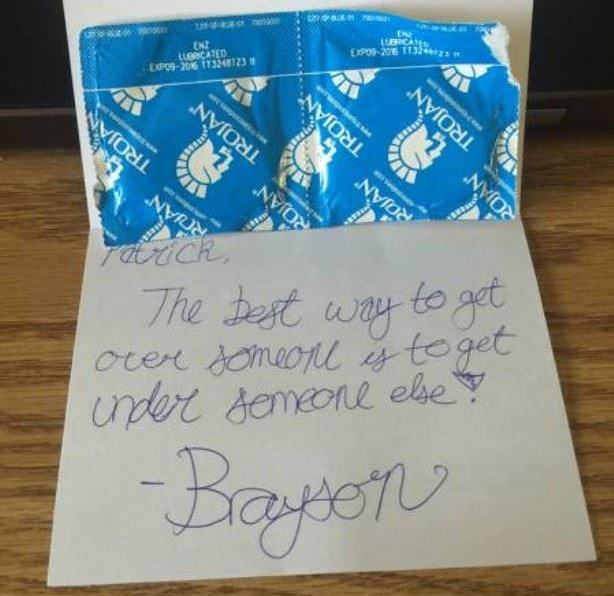 ENZ ENZ
LUBRICATED LUBRICATED
EXP09-2016 TT3248TZ3 EXP09-2016
TROJAN TROJAN TROJAN TROJAN
TROJAN TROJAN
Patrick,
The best way to get
over someone is to get
under someone else
- Brayson